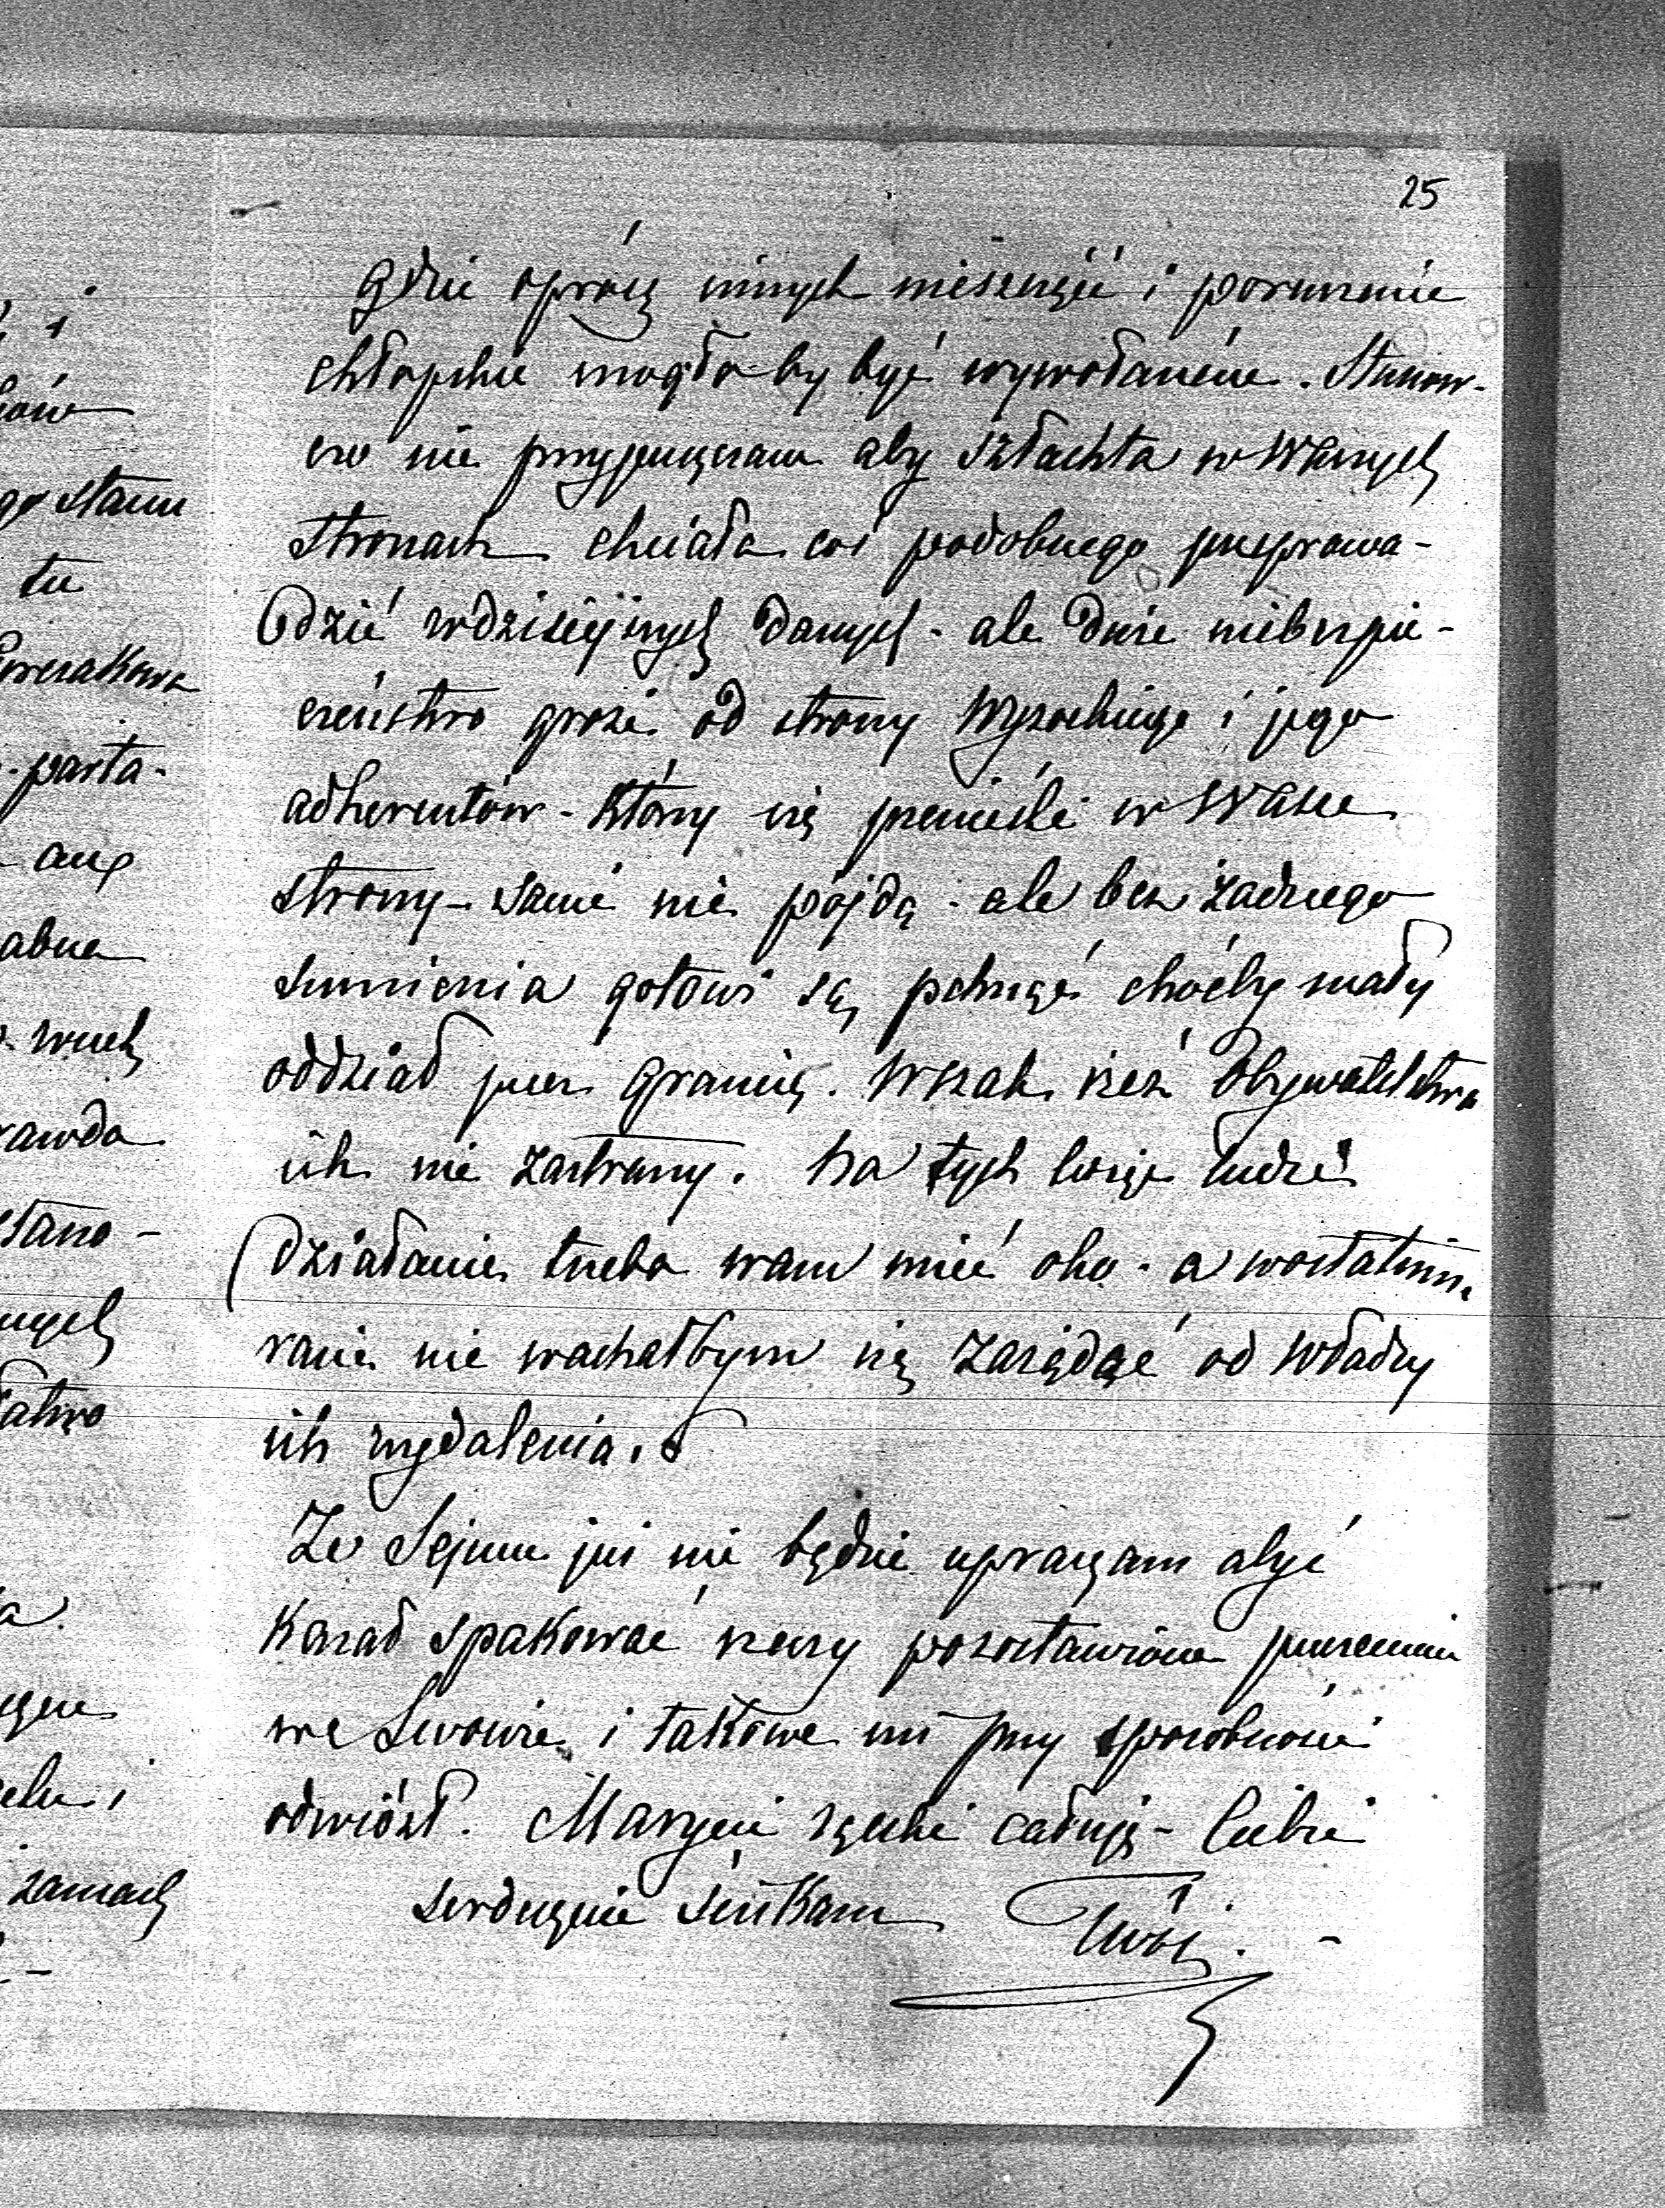 25
gdzie oprócz innych nieszczęść i poruszenie
chłopskie mogło-by być wywołaném. Stanow-
czo nie przypuszczam aby szlachta w Waszych
stronach chciała coś podobnego przeprowa-
dzić w dzisiéjszych danych - ale duże niebezpie-
czeństwo grozi od strony Wysockiego i jego
adherentów - którzy się przenieśli w Wasze
strony - sami nie pójdą - ale bez żadnego
sumienia gotowi są pchnąć choćby mały
oddział przez granicę. Wszak rzeź Obywatelstwa
ich nie zastraszy. Na tych ludzi
działanie trzeba wam mieć oko - a w ostatnim
razie nie wachałbym się zażądać od władzy
ich wydalenia.
Ze Sejmu już nie będzie upraszam abyś
kazał spakować rzeczy pozostawione przezemnie
we Lwowie i takowe mi przy sposobności
odwiózł. Maryni rączki całuję - Ciebie
serdecznie ściskam Twój.
go stanu
tu
parta-
abne
stano-